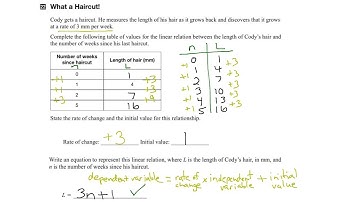 What a Haircut!
Cody gets a haircut. He measures the length of his hair as it grows back and discovers that it grows
at a rate of 3 mm per week.
Complete the following table of values for the linear relation between the length of Cody's hair and
the number of weeks since his last haircut.
Number of weeks since haircut n Length of hair (mm) L
0 1
+1 1 4 +3
+1 2 7 +3
+3 5 16 +9
n L
0 1
+1 1 4 +3
+1 2 7 +3
+1 3 10 +3
+1 4 13 +3
+1 5 16 +3
State the rate of change and the initial value for this relationship.
Rate of change: +3 Initial value: 1
Write an equation to represent this linear relation, where L is the length of Cody's hair, in mm, and
n is the number of weeks since his haircut.
dependent variable = rate of change × independent variable + initial value
L = 3n + 1